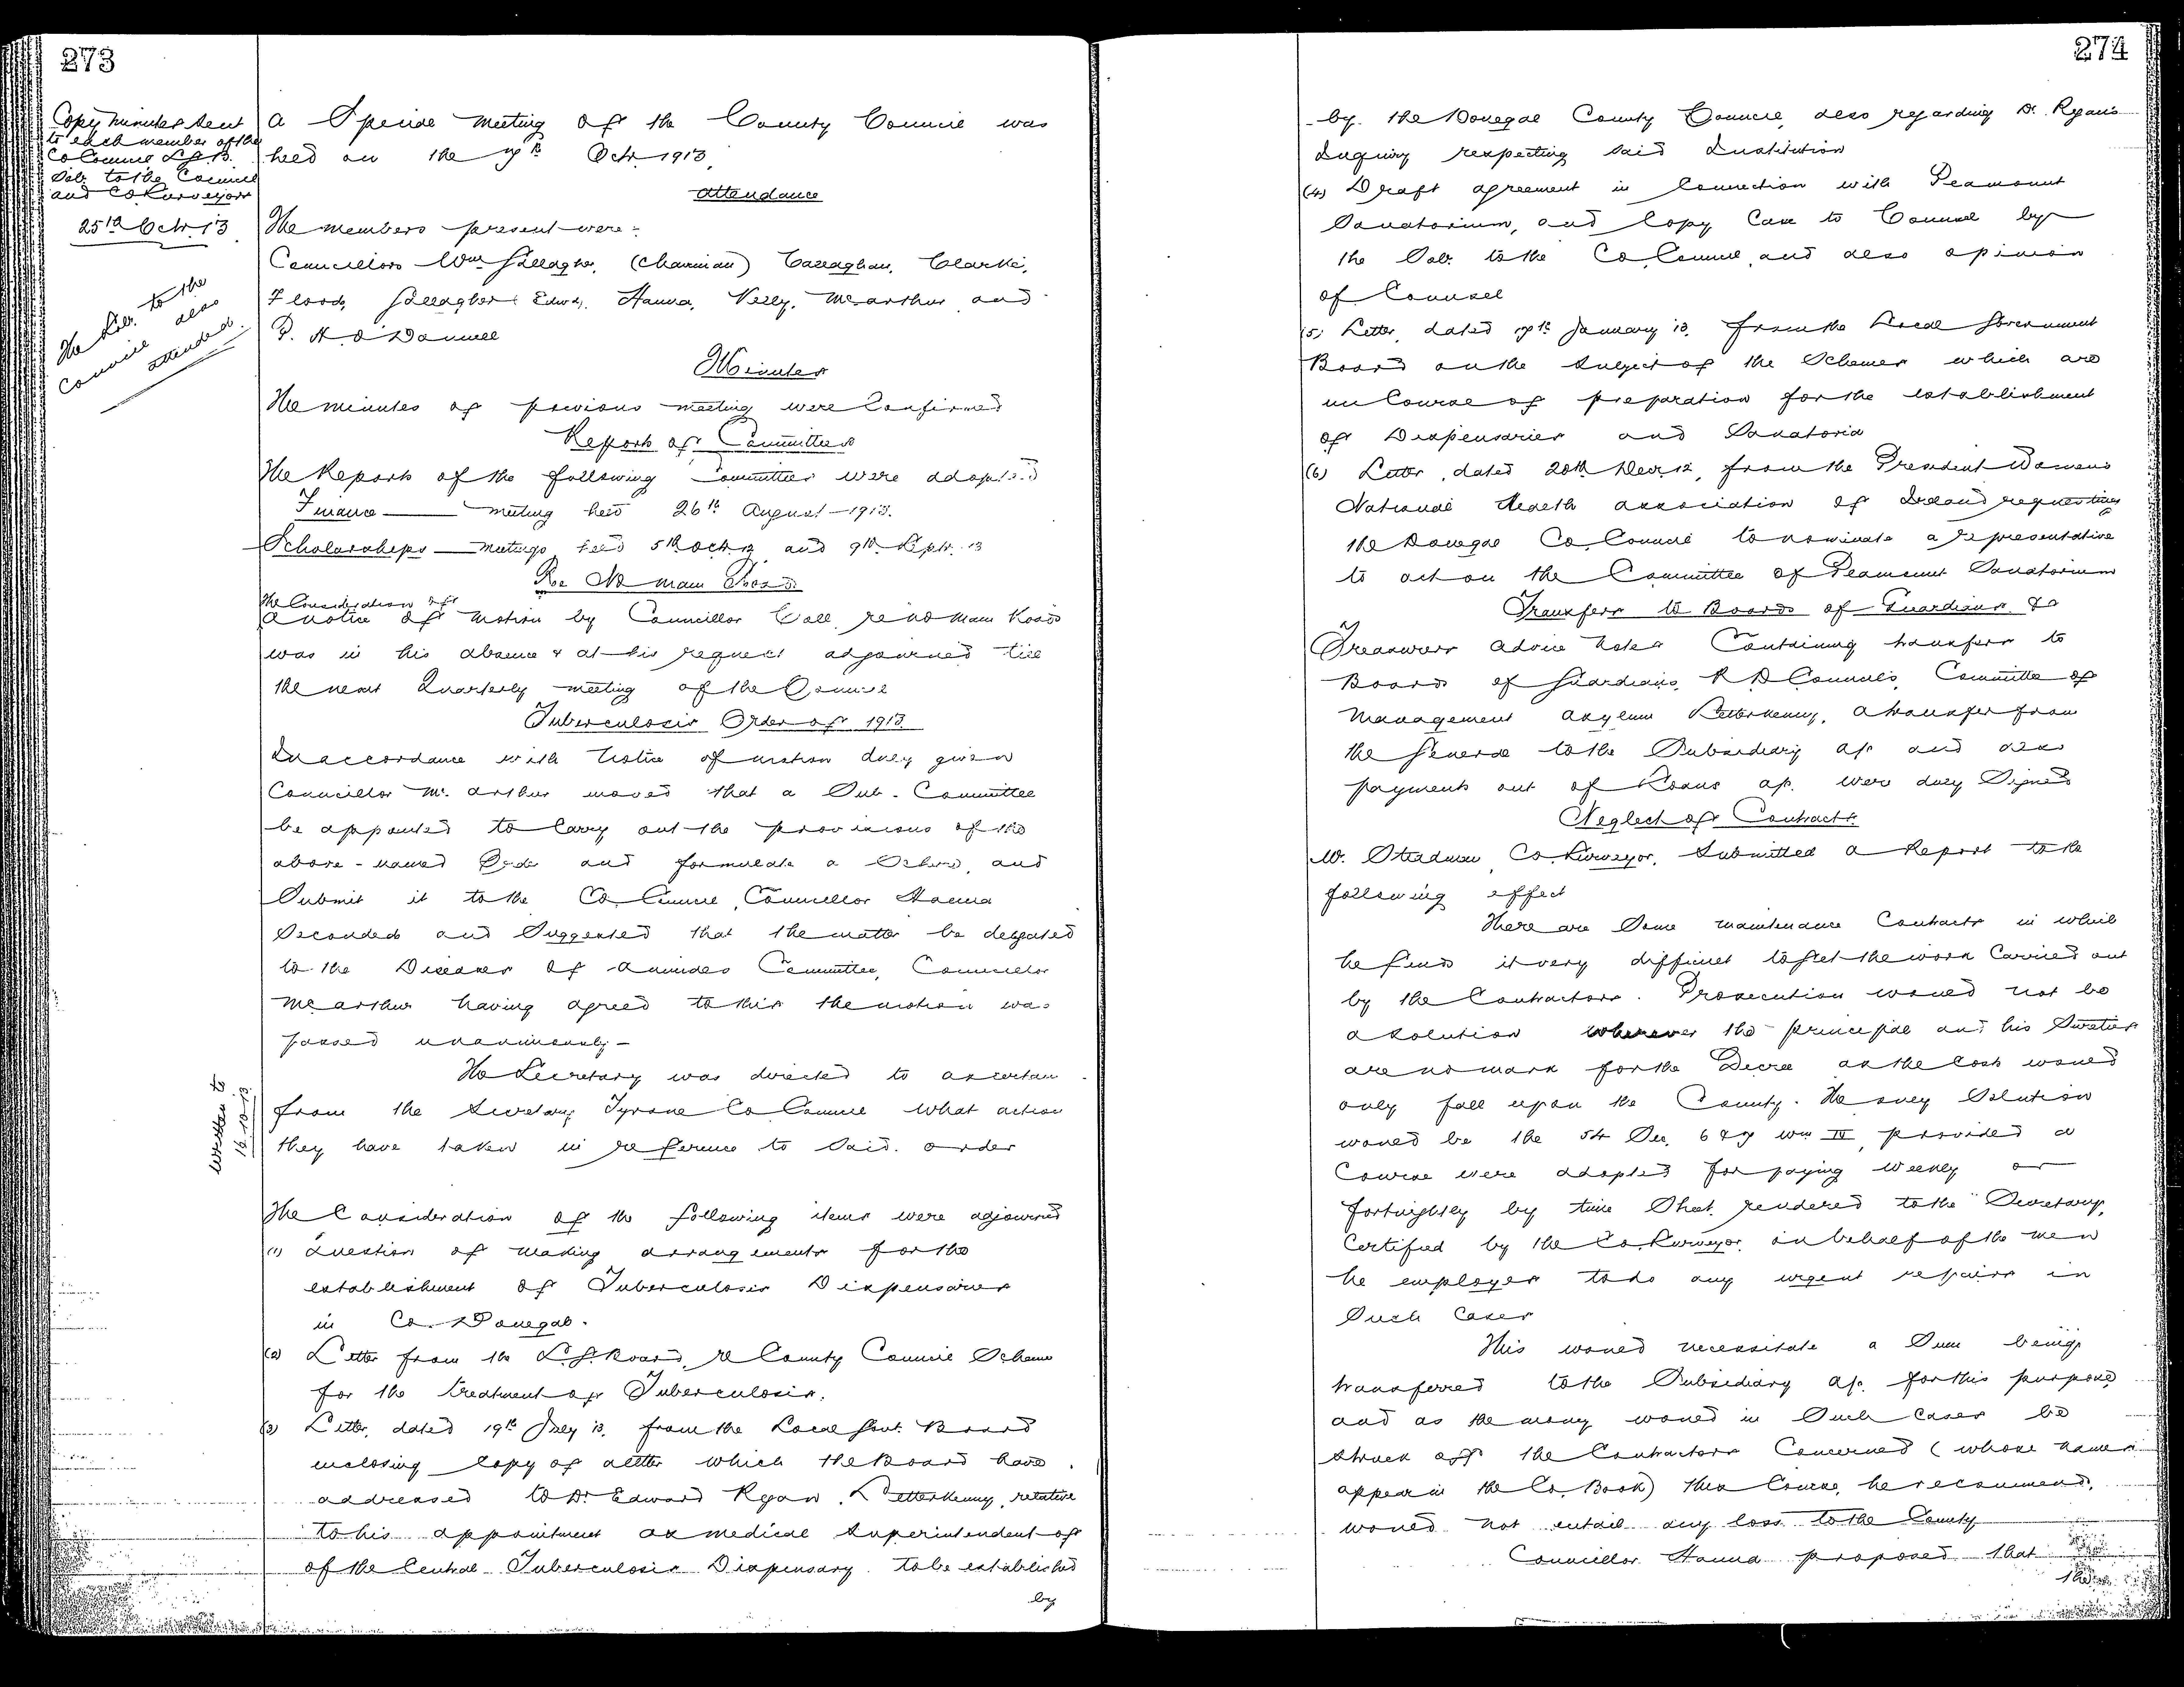 273
Copy minutes sent
to each member of the
Co Council L.G.B.
Solr. to the Council
and Co Surveyors
25th Octr. 13
The Solr. to the
Council also
attended.
A Special meeting of the County Council was
held on the 7th Octr 1913.
Attendance
The members present were:-
Councillors Wm Gallagher, (Chairman) Callaghan, Clarke,
Flood, Gallagher Edwd, Hanna, Kelly, McArthur and
P. H. O'Donnell
Minutes
The minutes of previous meeting were confirmed
Reports of Committees
The Reports of the following Committees were adopted
Finance — meeting held 26th August 1913.
Scholarships — meetings held 5th Octr 12 and 9th Septr. 13
Re Main Roads
The Consideration of
a notice of motion by Councillor re Main Roads
was in his absence & at his request adjourned till
the next Quarterly meeting of the Council
Tuberculosis Order of 1913
In accordance with notice of motion duly given
Councillor McArthur moved that a Sub-Committee
be appointed to carry out the provisions of the
above-named Order and formulate a Scheme, and
Submit it to the Co. Council, Councillor Hanna
Seconded and Suggested that the matter be delegated
to the Diseases of Animals Committee, Councillor
McArthur having agreed to this the motion was
passed unanimously -
The Secretary was directed to ascertain
written to
16.10.13
from the Secretary Tyrone Co Council what action
they have taken in reference to said order
The Consideration of the following items were adjourned
(1) Question of making arrangements for the
establishment of Tuberculosis Dispensaries
in Co. Donegal.
(2) Letter from the L.G. Board, re County Council Scheme
for the treatment of Tuberculosis.
(3) Letter, dated 19th July 13, from the Local Govt. Board
inclosing copy of a letter which the Board have
addressed to Dr. Edward Ryan, Letterkenny, relative
to his appointment as medical Superintendent of
of the Central Tuberculosis Dispensary to be established
by
274
by the Donegal County Council, also regarding Dr. Ryan's
Inquiry respecting said Institution
(4) Draft agreement in Connection with Peamount
Sanatorium, and Copy Case to Counsel by
the Solr. to the Co. Council, and also opinion
of Counsel
(5) Letter, dated 7th January 13, from the Local Government
Board on the subject of the Schemes which are
in course of preparation for the establishment
of Dispensaries and Sanatoria
(6) Letter, dated 20th Decr. 12, from the President Womens
National Health Association of Ireland requesting
the Donegal Co. Council to nominate a representative
to act on the Committee of Peamount Sanatorium
Transfers to Boards of Guardians &c
Treasurers Advice Notes Containing transfers to
Boards of Guardians, R D Councils, Committee of
Management Asylum Letterkenny, a transfer from
the General to the Subsidiary a/c and also
payments out of Loans a/c. were duly Signed
Neglect of Contracts
Mr. Steadman, Co. Surveyor, Submitted a Report to the
following effect
There are Some maintenance Contracts in which
he finds it very difficult to get the work Carried out
by the Contractors. Prosecution would not be
a solution wherever the principal and his Sureties
are no mark for the Decree as the Costs would
only fall upon the County. The only Solution
would be the 54 Sec. 6 & 7 Wm IV provided a
Course were adopted for paying weekly or
fortnightly by time Sheet rendered to the Secretary,
Certified by the Co. Surveyor, on behalf of the men
he employes to do any urgent repairs in
Such Cases
This would necessitate a Sum being
transferred to the Subsidiary a/c. for this purpose
and as the money would in Such Cases be
struck off the Contractors Concerned (whose names
appear in the Co. Book) this Course, he recommends,
would not entail any loss to the County
Councillor Hanna proposed that
the